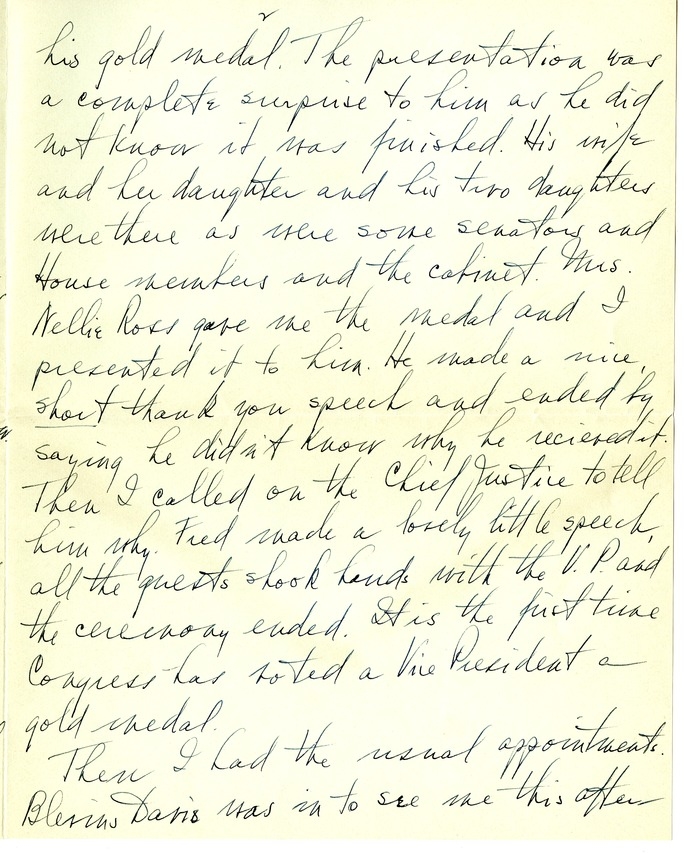 2
his gold medal. The presentation was
a complete surprise to him as he did
not know it was finished. His wife
and her daughter and his two daughters
were there as were some senators and
House members and the cabinet. Mrs.
Nellie Ross gave me the medal and I
presented it to him. He made a nice,
short thank you speech and ended by
saying he didn't know why he recieved it.
Then I called on the Chief Justice to tell
him why. Fred made a lovely little speech,
all the guests shook hands with the V.P. and
the ceremony ended. It is the first time
Congress has voted a Vice President a
gold medal.
Then I had the usual appointments.
Blevins Davis was in to see me this after